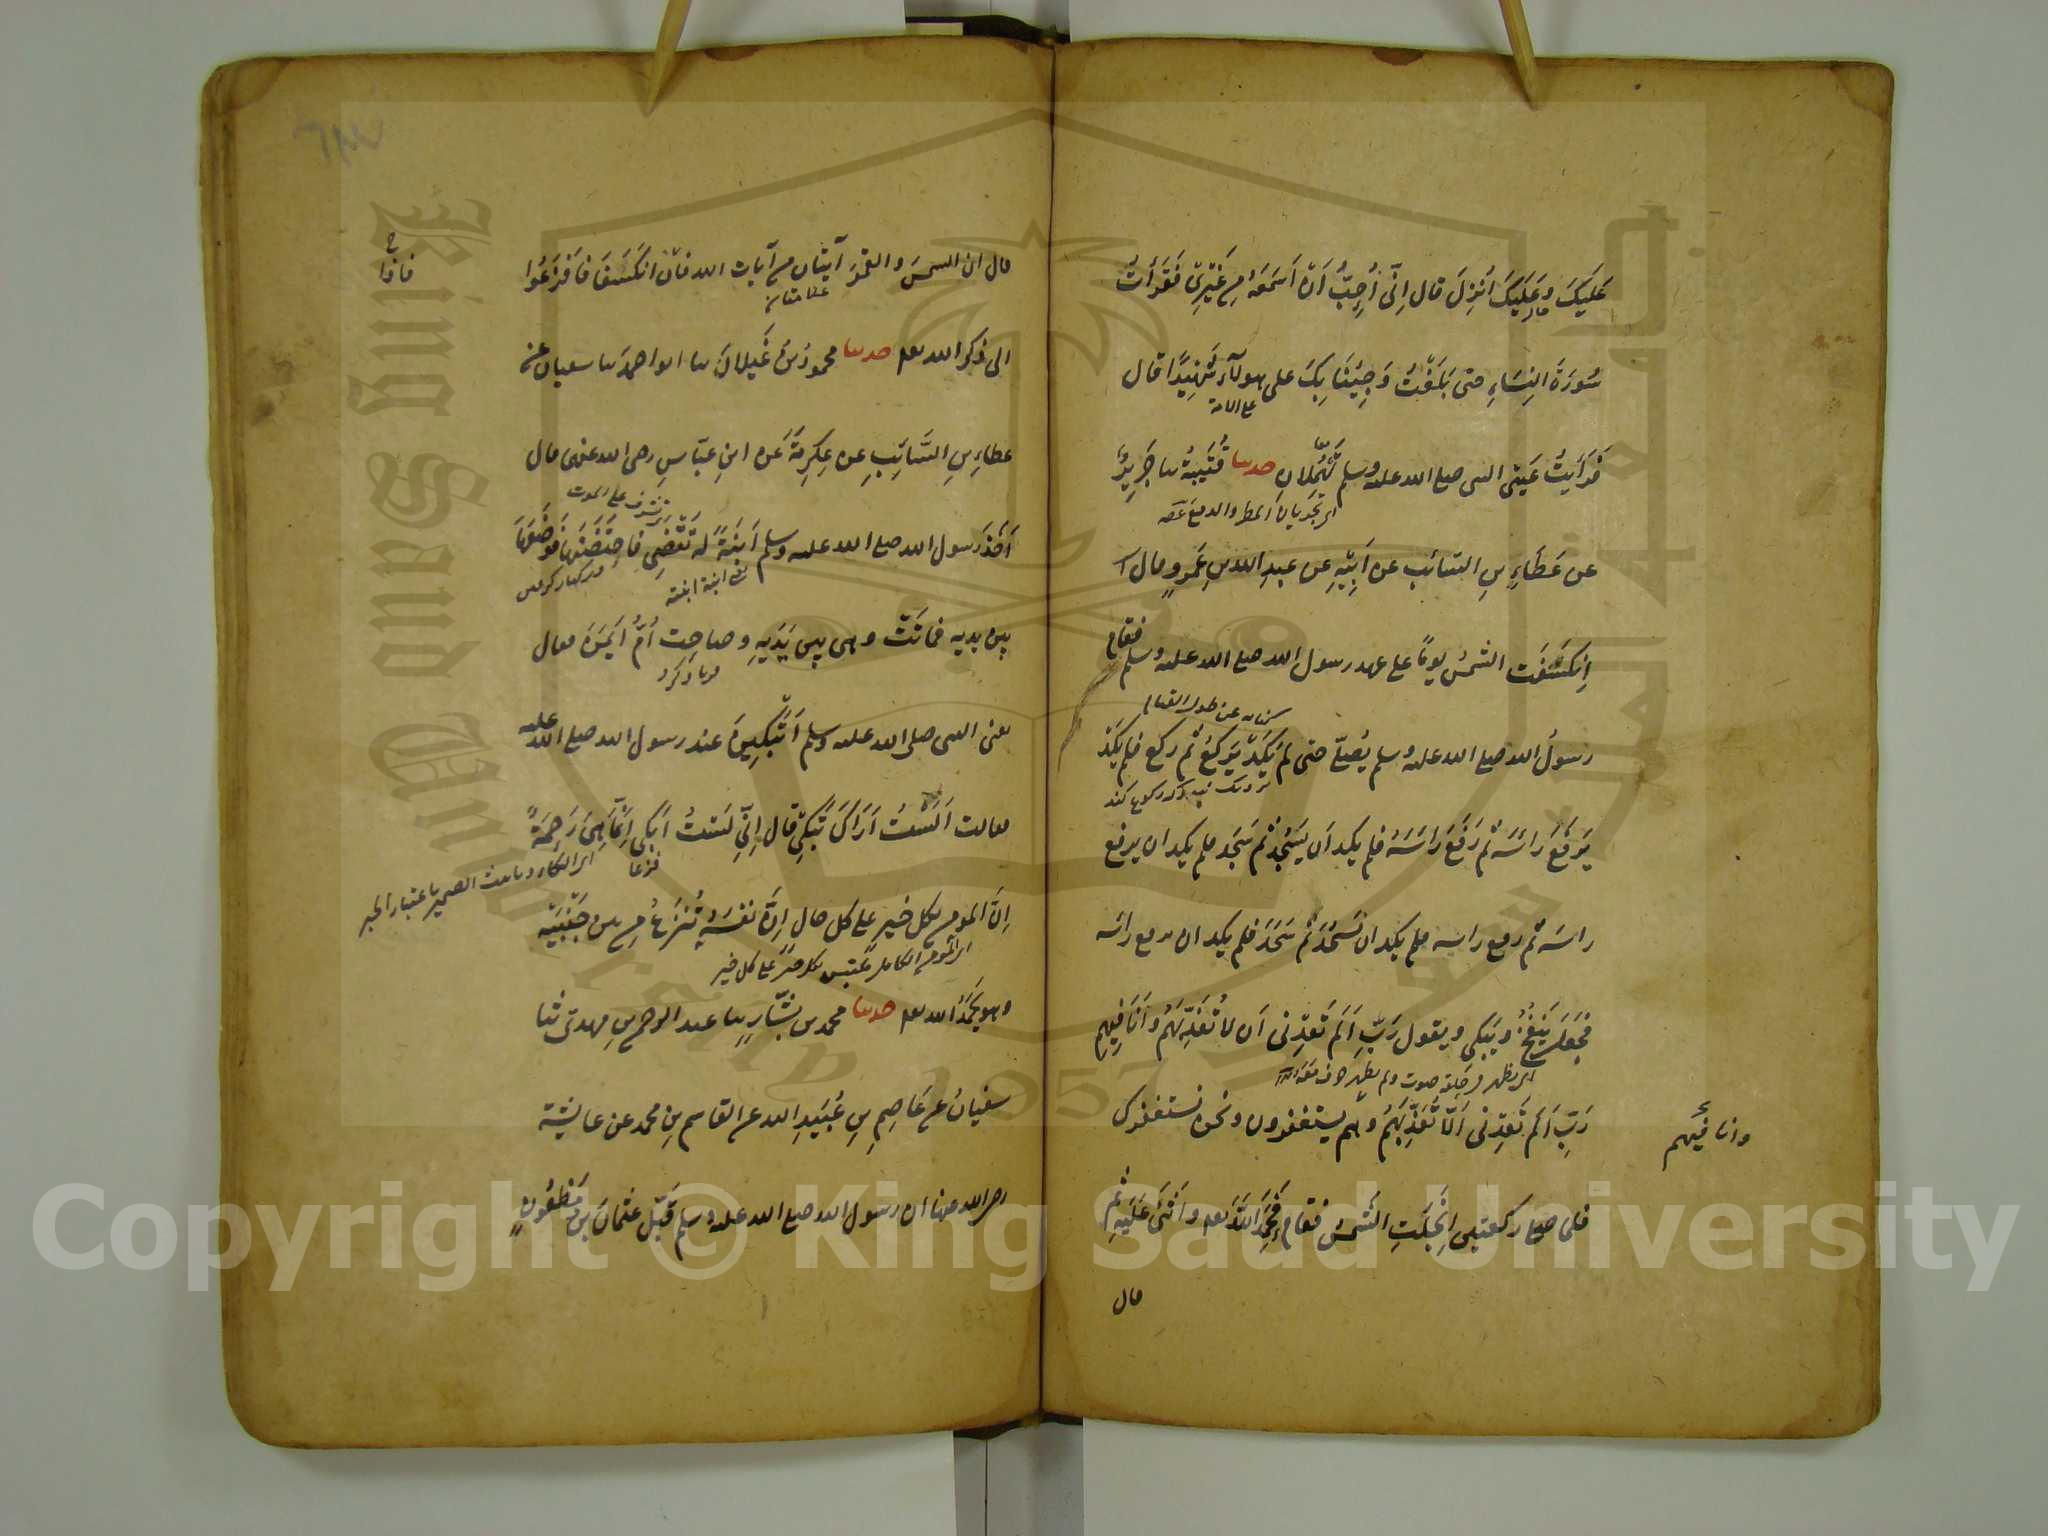 عَلَيكَ وعَلَيكَ اُنزِلَ قال اِنّى اُحِبُّ اَنْ اَسمَعَهُ مِن غَيْرِىْ فَقَرَأتُ
سُورَةَ النِسَاءِ حتى بَلَغْتُ وَجِئنَا بِكَ على هولآءِ شَهِيدًا قال
فَرَأيتُ عَينَى النبى صلى الله عليه وسلم تَهْمُلانِ حدثنا قُتَيبَةُ ثنا جَرِيرٌ
اى تجريان المطر والدمع
عن عَطَاءِ بنِ السَائب عن اَبِيْهِ عن عبدِ اللهِ بنِ عَمروٍ قال
اِنكَسَفَت الشمسُ يومًا على عهد رسول الله صلى الله عليه وسلم فقام
كنايه عن طول القيام
رسولُ الله صلى الله عليه وسلم يُصَلّى حتى لم يَكَدْ يَركَعُ ثم ركع فلم يَكَدْ
يَرفَعَ رَاسَه ثم رَفَعَ رَاسَهُ فلم يكد اَن يَسْجُدَ ثم سَجَدَ فلم يكد ان يرفع
راسَه ثم رفع راسه فلم يكد ان يَسْجُدَ ثم سَجَدَ فلم يكد ان يرفع راسَه
فجَعَلَ يَنفُخُ ويَبكى ويقول رَبِّ اَلَم تَعِدْنى اَن لا تُعَذِّبَهُم وأنَا فِيهِم
رَبِّ اَلَم تَعِدْنى اَلّا تُعَذِّبَهُم وهم يستغفرون ونحن نستغفرك
وانا فيهم
فلما صلى ركعتين اِنجَلَتِ الشَمسُ فقام فَحَمِدَ اللهَ تعالى واَثنَى عَلَيهِ ثم
قال
قال ان الشمسَ والقمَرَ آيتان من آيات الله فان انكَسَفَا فَافزَعُوا
علامتان
فاذا
الى ذكر الله تعالى حدثنا محمودُ بنُ غَيلانَ ثنا ابو احمدَ ثنا سفيان عن
عطاءِ بنِ السَّائِبِ عن عِكرِمَةَ عَن ابنِ عبّاسٍ رضى الله عنهما قال
اَخَذَ رسول الله صلى الله عليه وسلم اَبنَةً له تَقْضِى فَاحتَضَنَها فوَضَعَها
بين يديه فمَاتَتْ وهى بين يَدَيهِ وصاحت اُمُّ اَيمَنَ فقال
يعنى النبى صلى الله عليه وسلم اَتَبْكِينَ عند رسول الله صلى الله عليه
فقالت اَلَستُ اَرَاكَ تَبكِى قال اِنِّى لَستُ اَبكِى اِنَّمَا هِىَ رَحمَةٌ
اِنَّ المومن بكل خيرٍ على كل حال اِنَّ نفسَهُ تُنزَعُ مِن بين جَنْبَيْهِ
وهو يَحمَدُ الله تعالى حدثنا محمد بن بَشّارٍ ثنا عبد الرحمن بن مهدى ثنا
سفيانُ عن عَاصِمِ بنِ عُبَيدِ الله عن القاسم بنِ محمد عن عايشة
رضى الله عنها ان رسول الله صلى الله عليه وسلم قَبَّلَ عثمانَ بن مَظعُونٍ
King Saud University
1957
Copyright © King Saud University